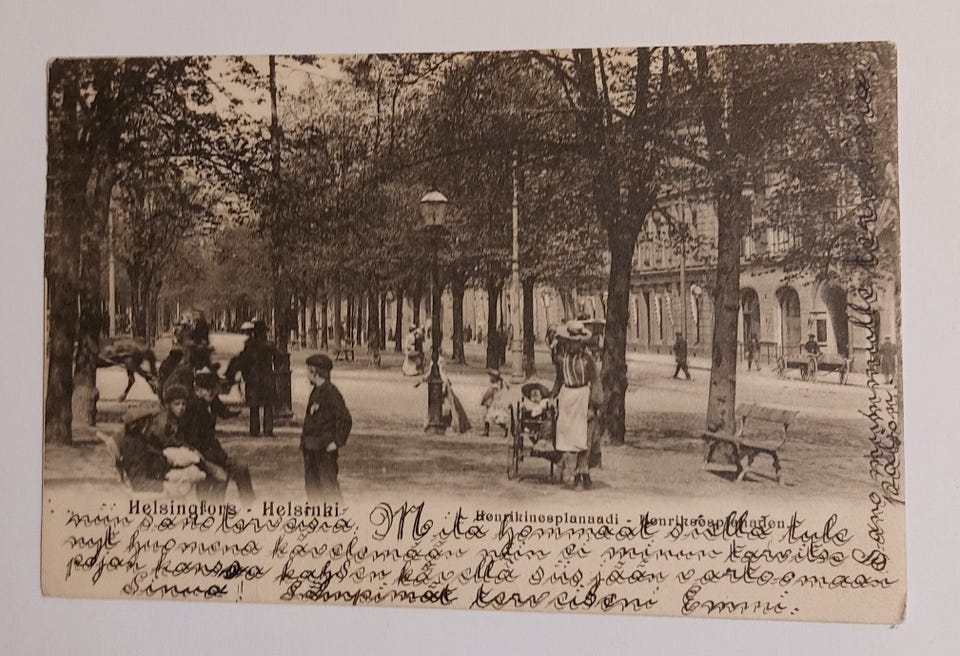 Helsingfors - Helsinki.
Henrikinesplanaadi - Henriksesplanaden.
Mitä hommaat siellä tule
nyt huomena kävelemään niin ei minun tarvitse
pojan kanssa kahden kävellä siis jään vartoomaan
Sinua! Lämpimät terveiseni Emmi.
Sano terveisiä